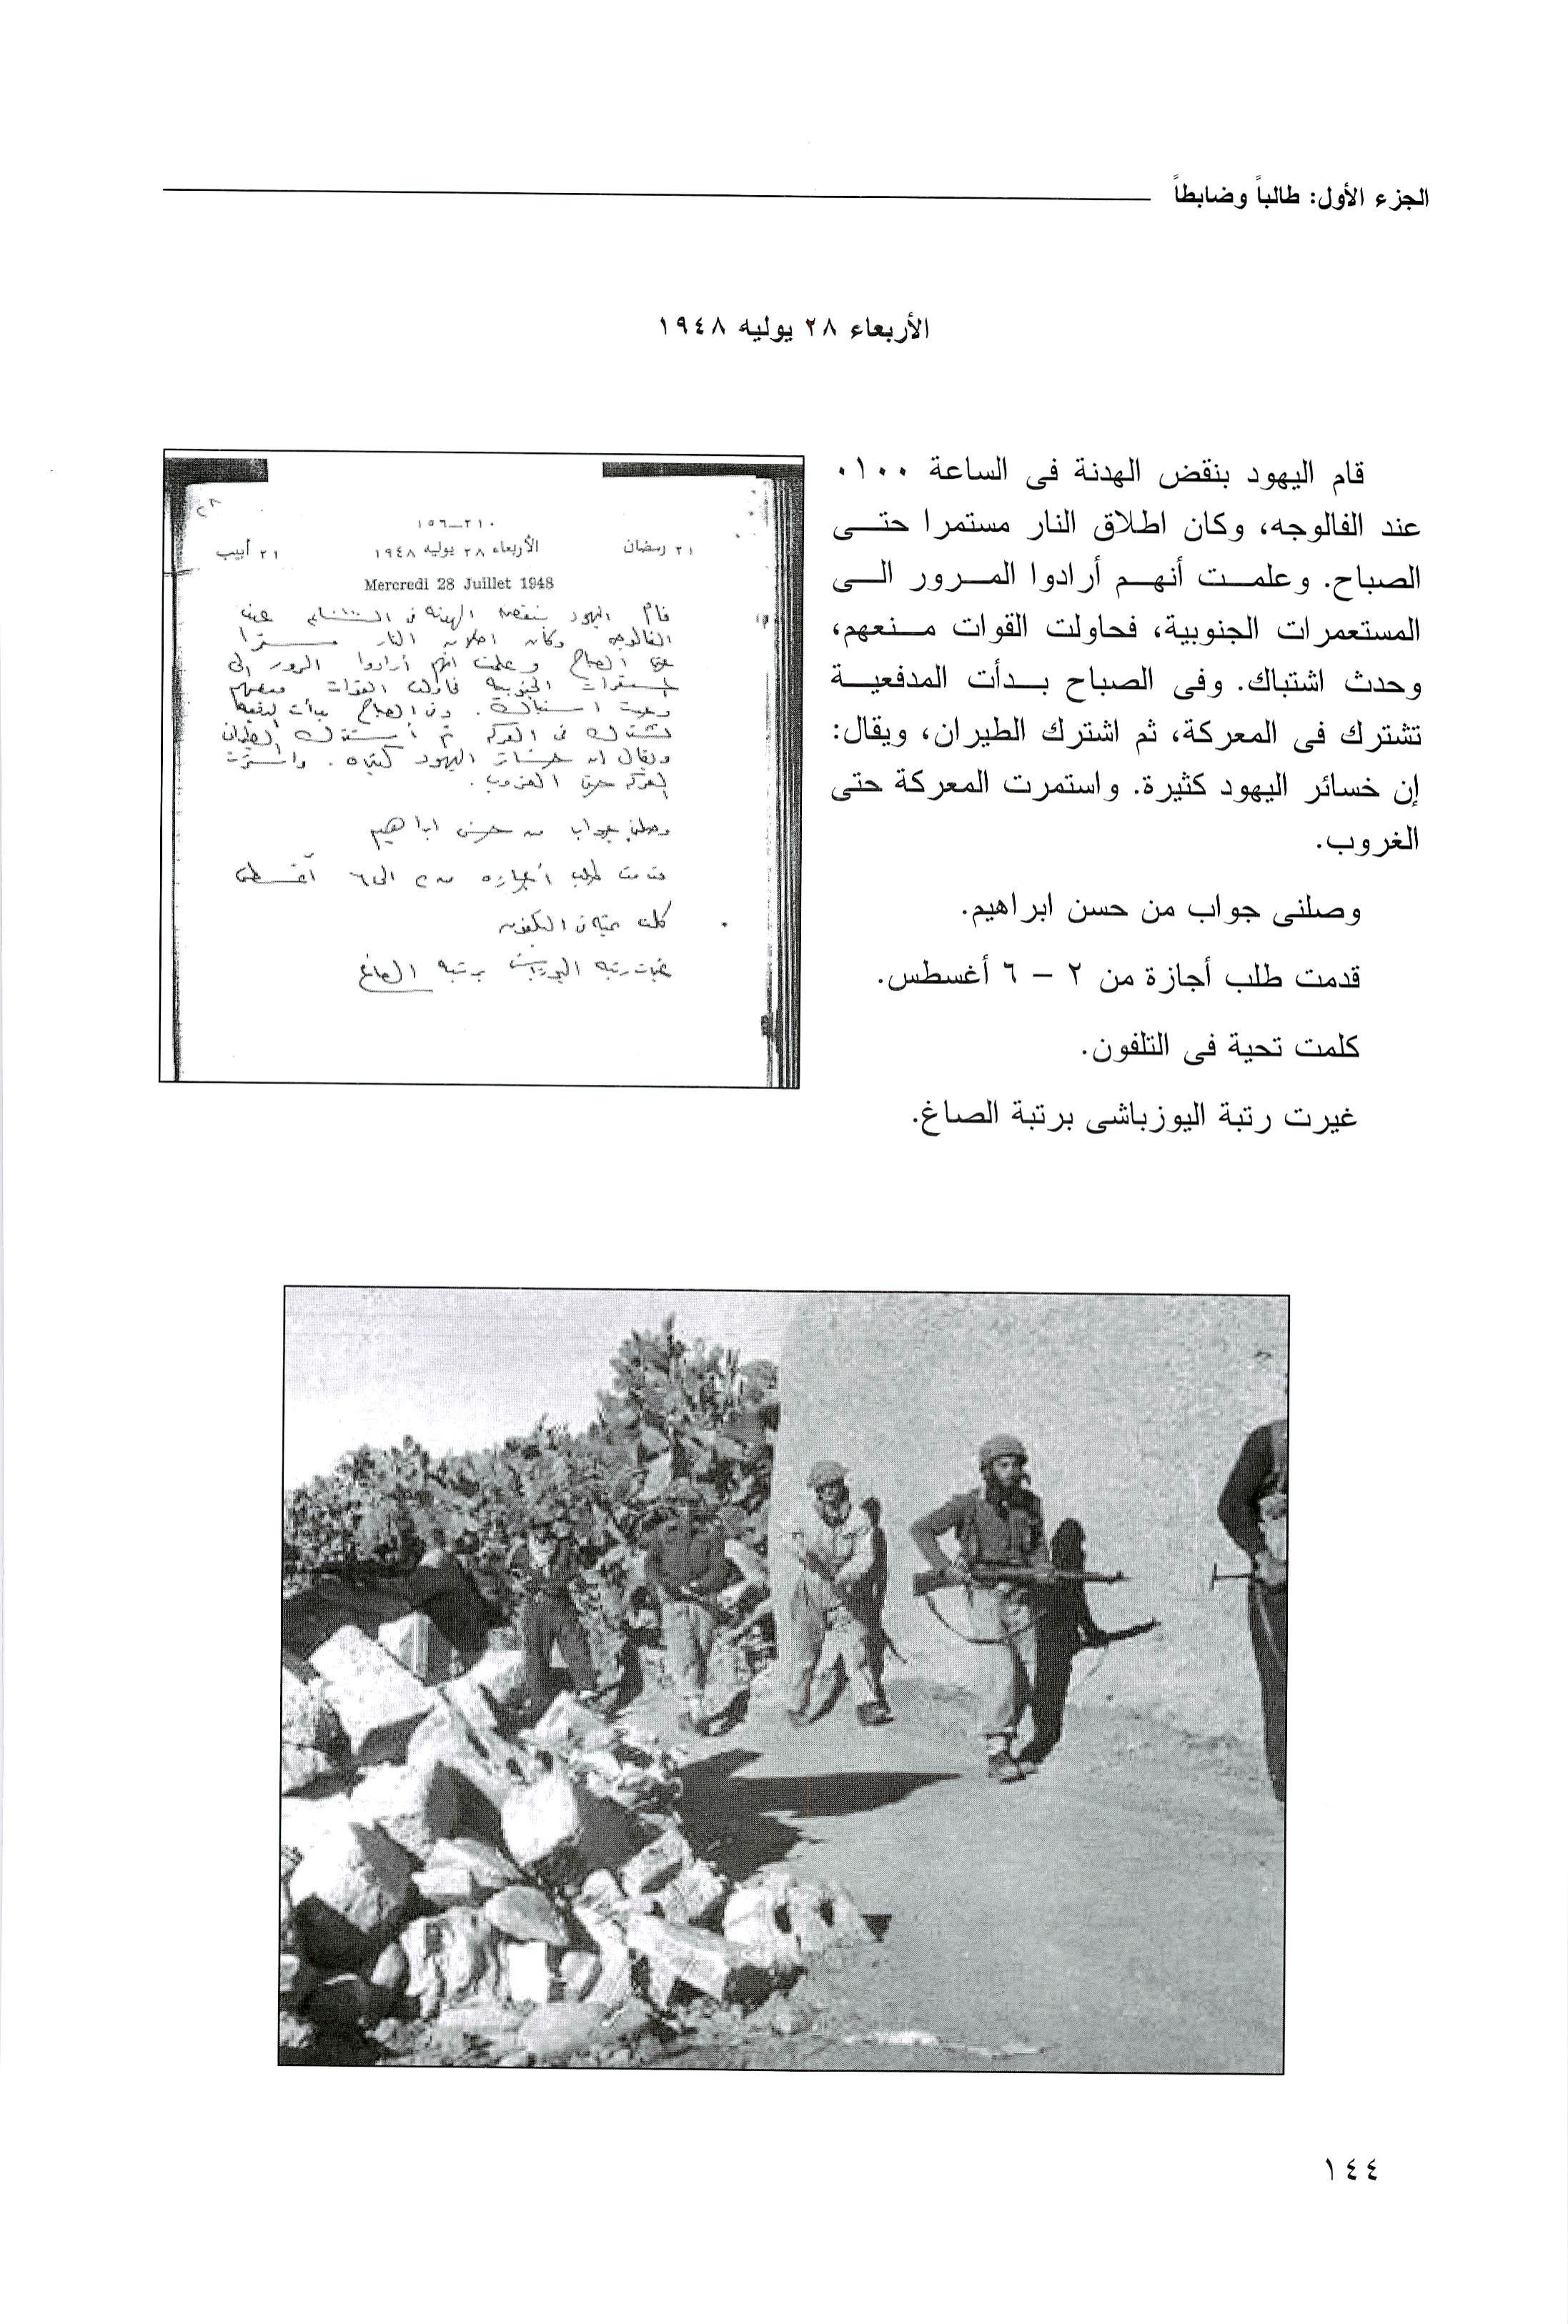 الجزء الأول: طالباً وضابطاً
الأربعاء ٢٨ يوليه ١٩٤٨
قام اليهود بنقض الهدنة فى الساعة ٠١٠٠
عند الفالوجه، وكان اطلاق النار مستمرا حتى
الصباح. وعلمت أنهم أرادوا المرور الى
المستعمرات الجنوبية، فحاولت القوات منعهم،
وحدث اشتباك. وفى الصباح بدأت المدفعية
تشترك فى المعركة، ثم اشترك الطيران، ويقال:
إن خسائر اليهود كثيرة. واستمرت المعركة حتى
الغروب.
وصلنى جواب من حسن ابراهيم.
قدمت طلب أجازة من ٢ – ٦ أغسطس.
كلمت تحية فى التلفون.
غيرت رتبة اليوزباشى برتبة الصاغ.
٢٨
٢١٠-١٥٦
٢١ رمضان الأربعاء ٢٨ يوليه ١٩٤٨ ٢١ أبيب
Mercredi 28 Juillet 1948
قام اليهود بنقض الهدنة فى الساعة عند
الفالوجه وكان اطلاق النار مستمرا
حتى الصباح وعلمت انهم أرادوا المرور الى
المستعمرات الجنوبية فحاولت القوات منعهم
وحدث اشتباك. وفى الصباح بدأت المدفعية
تشترك فى المعركة ثم أشترك الطيران
ويقال ان خسائر اليهود كثيره. واستمرت
المعركة حتى الغروب.
وصلنى جواب من حسن ابراهيم
قدمت طلب أجازه من ٢ الى ٦ أغسطس
كلمت تحية فى التلفون
غيرت رتبة اليوزباشى برتبة الصاغ
١٤٤